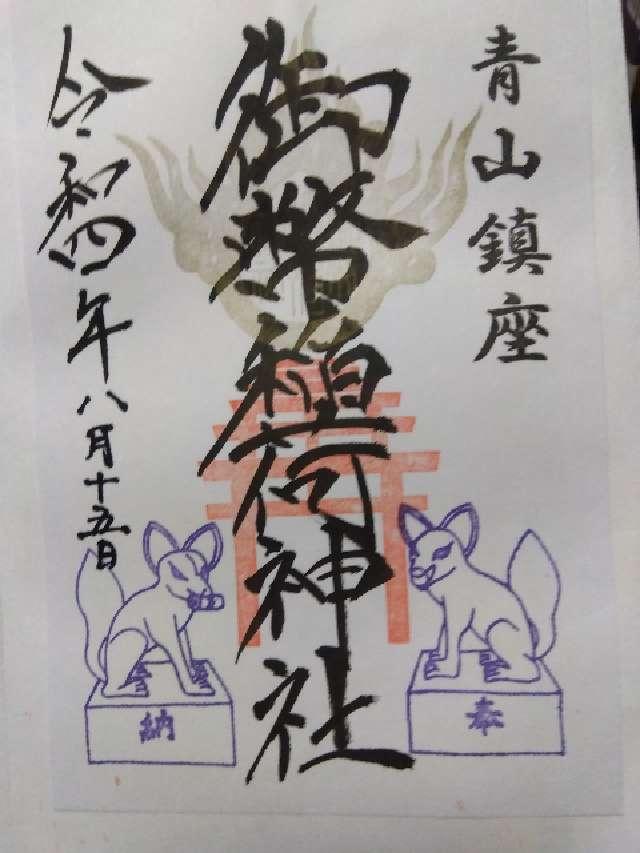 青山鎮座
御幣稲荷神社
令和四年八月十五日
奉
納